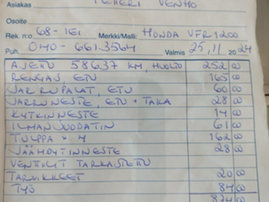 Asiakas PETTERI VENHO
Rek. n:o 68-IEI Merkki/Malli: HONDA VFR1200
Puh. 040-6613564 Valmis 25.11 2024
AJETU 58637 KM, HUOLTO 252 00
RENGAS, ETU 165 00
JARRUPALAT, ETU 60 00
JARRUNESTE, ETU + TAKA 28 00
KYTKINNESTE 14 00
ILMANSUODATIN 61 00
TULPPA x 4 162 00
JÄÄHDYTINNESTE 28 00
VENTTIILIT TARKASTETTU
TARVIKKEET 20 00
TYÖ 84 00
874 00